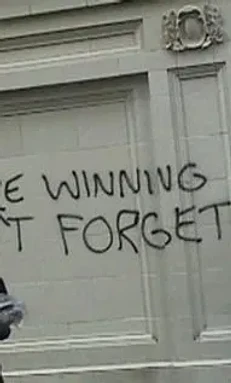 E WINNING
'T FORGET